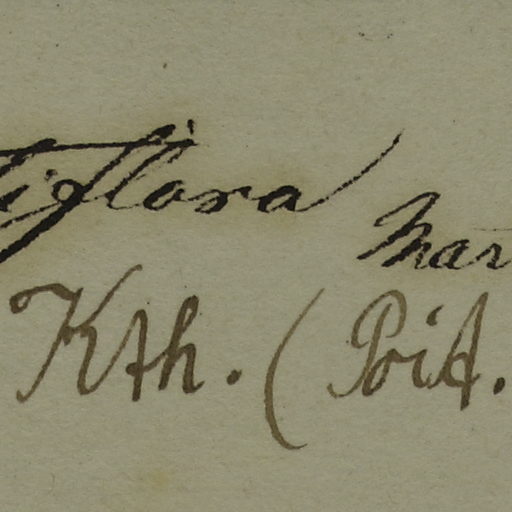 iflora Mar
Kth. (Poit.